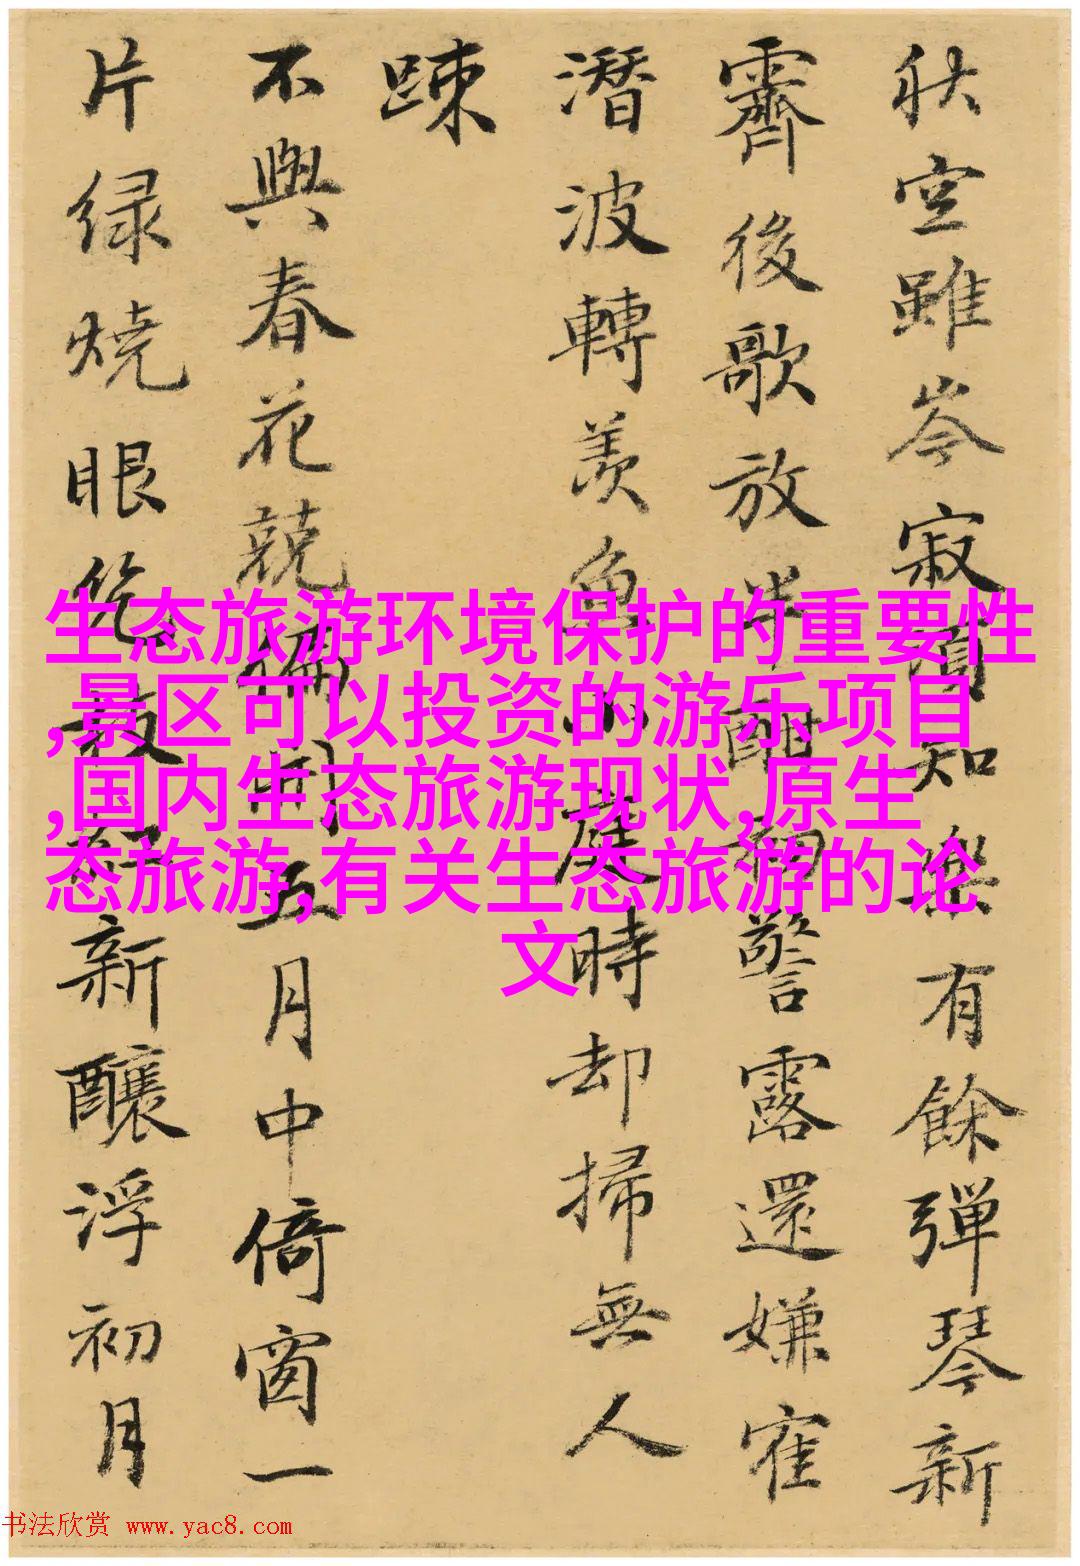 秋空雖岑寂知樂有餘彈琴新
霽後歌放半酣初警露還嫌寉
潛波轉羨魚小庭時却掃無人
踈
不與春花競偏五月中倚窗一
片緑燒眼新釀浮初月
生态旅游环境保护的重要性
,景区可以投资的游乐项目
,国内生态旅游现状,原生
态旅游,有关生态旅游的论
文
书法欣赏 www.yac8.com